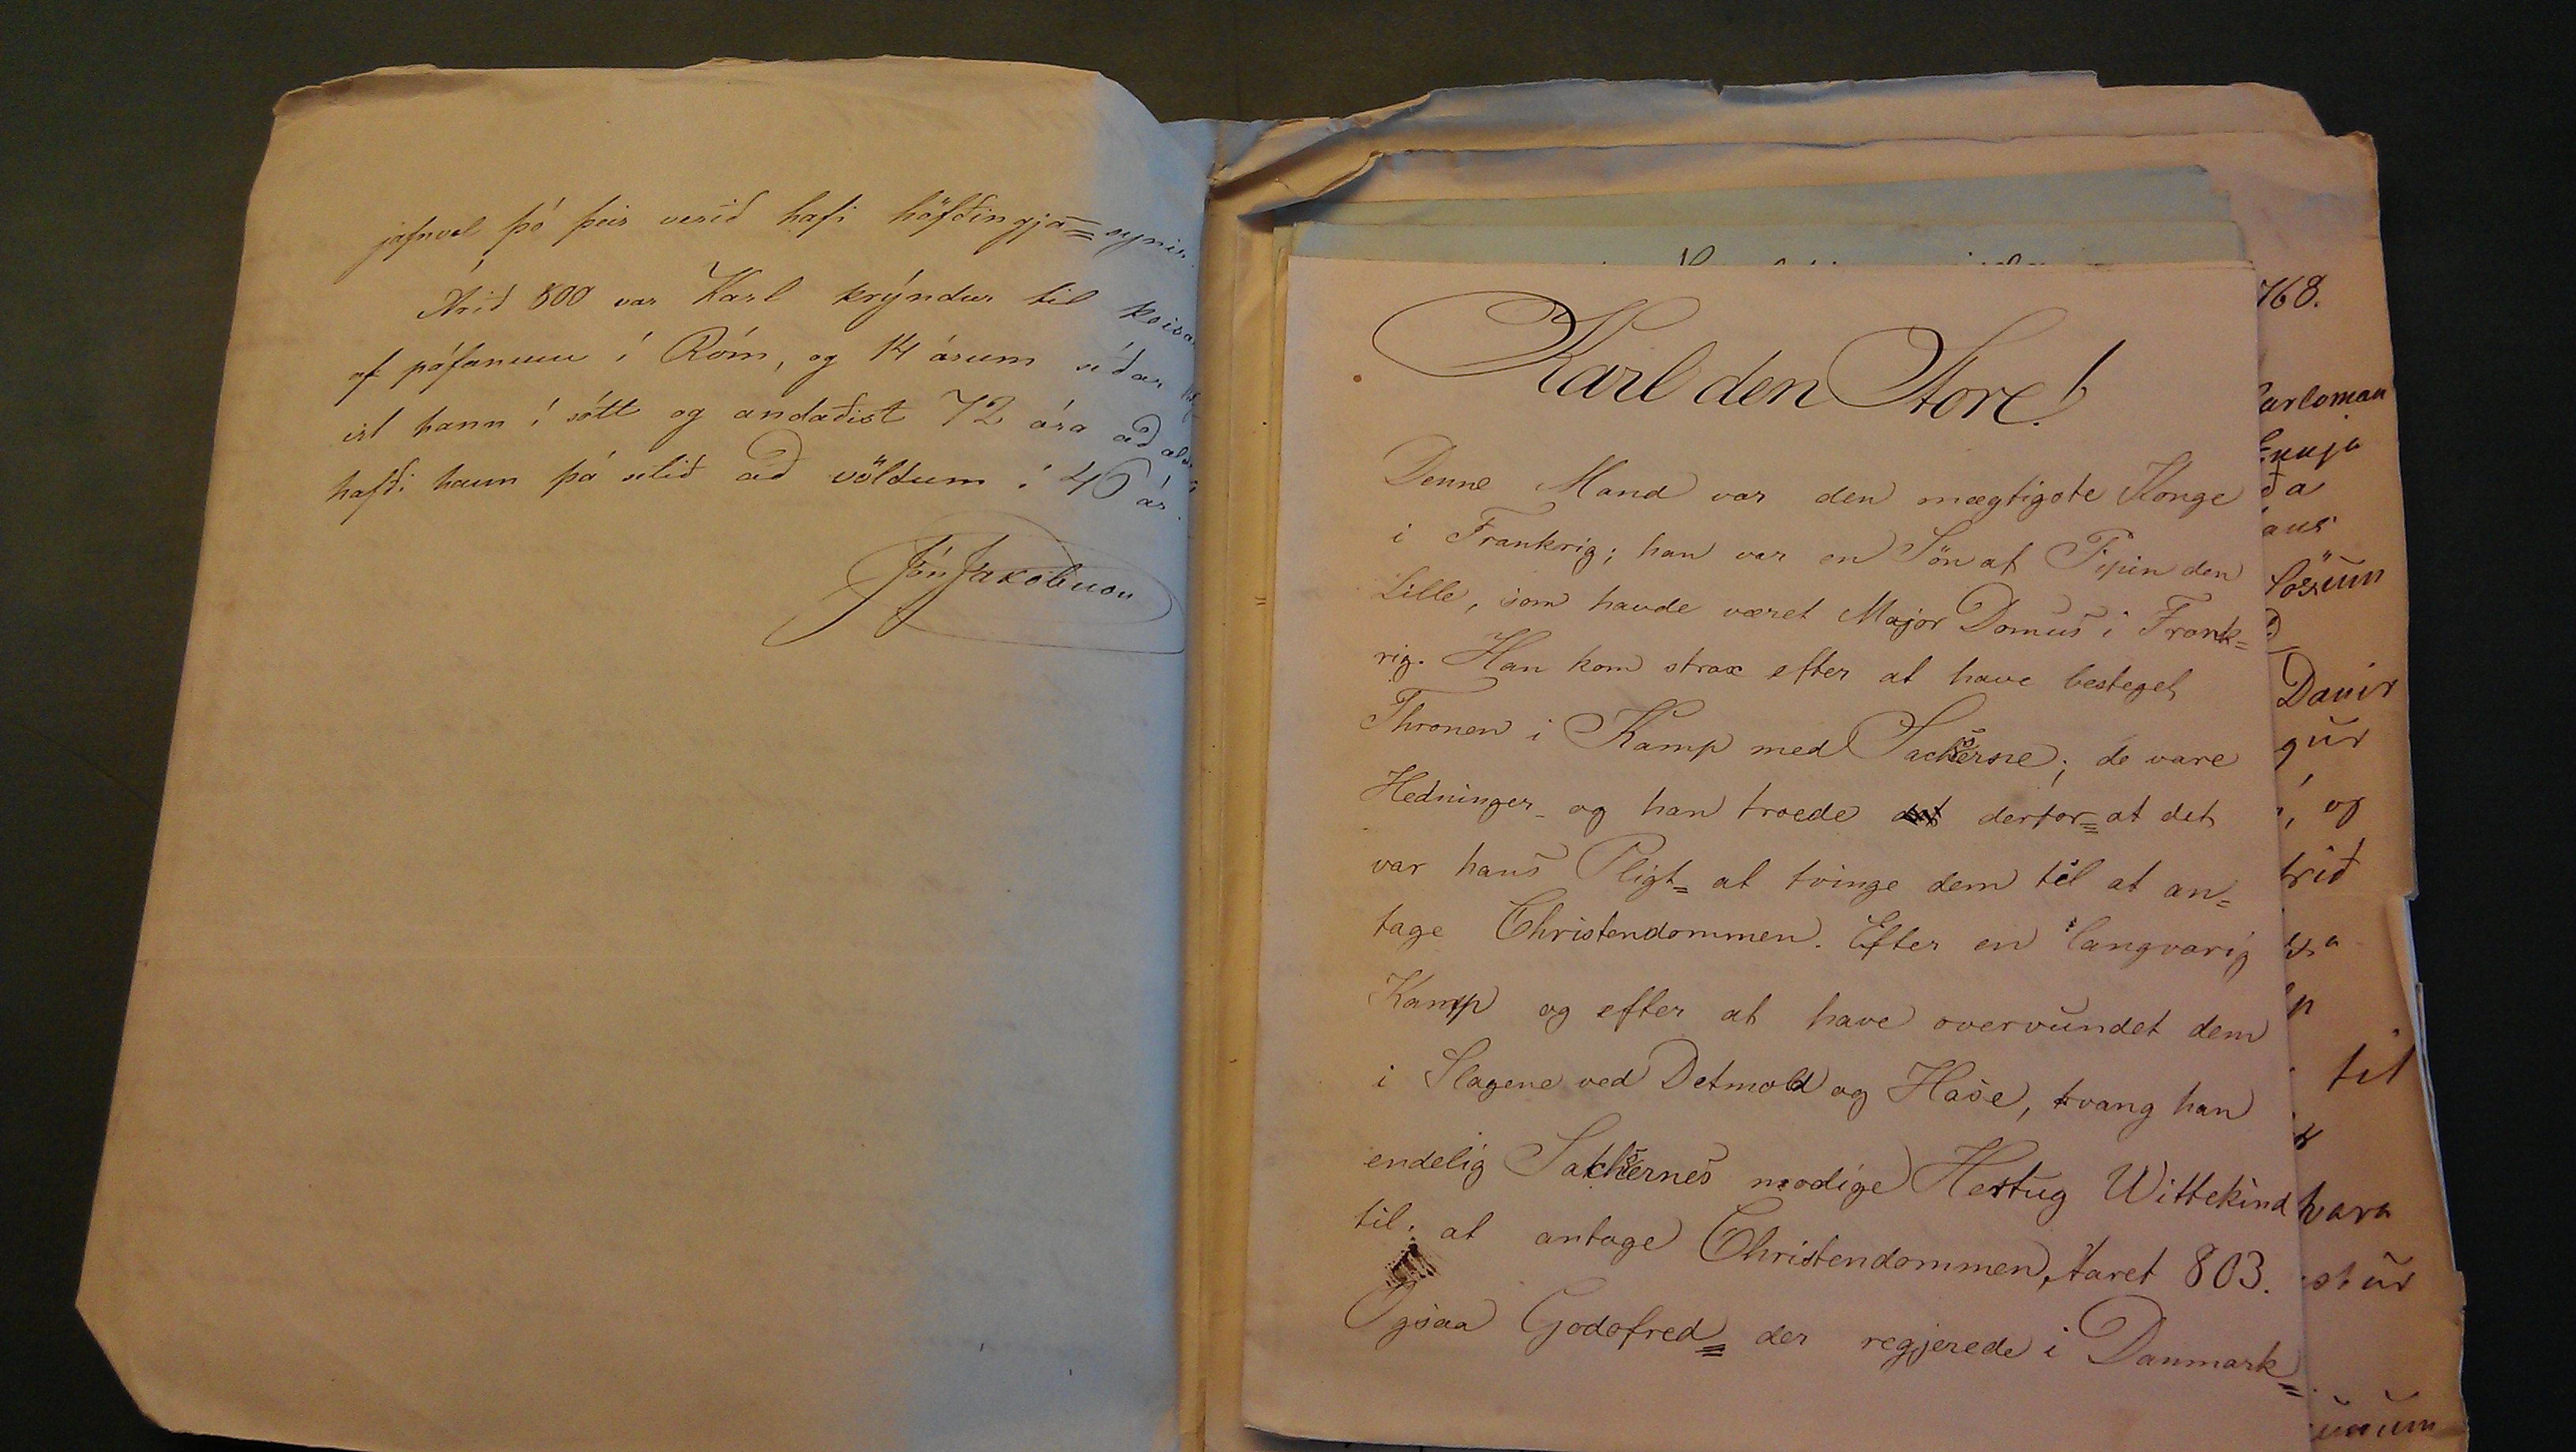 jafnvel þó þeir verið hafi höfðingja=synir.
Árið 800 var Karl krýndur til keisa
af páfanum í Róm, og 14 árum síðar
ist hann í sótt og andaðist 72 ára að ald
hafði hann þá setið að völdum í 46 ár.
Jón Jakobsson
Karl den Store!
Denne Mand var den mægtigste Konge
i Frankrig; han var en Sön af Pipin den
Lille, som havde været Major Domus i Frank=
rig. Han kom strax efter at have besteget
Thronen i Kamp med Sachserne; de vare
Hedninger og han troede derfor= at det
var hans Pligt= at tvinge dem til at an=
tage Christendommen. Efter en langvarig
Kamp og efter at have overvundet dem
i Slagene ved Detmold og Hase, tvang han
endelig Sachsernes modige Hertug Wittekind
til at antage Christendommen, Aaret 803.
Ogsaa Godofred= der regjerede i Danmark=
768.
arloman
ða
ans
Danir
gur
, og
trið
til
vara